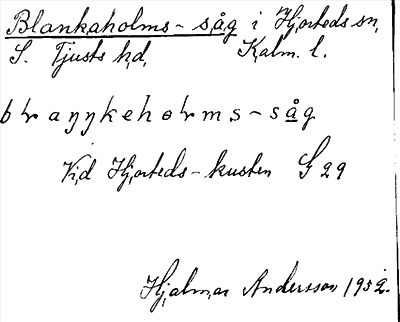 Blankaholms-såg i Hjorteds sn,
S. Tjusts hd, Kalm. l.
braŋŋkehoɫrms-såg
Vid Hjorteds-kusten G 29
Hjalmar Andersson 1952.